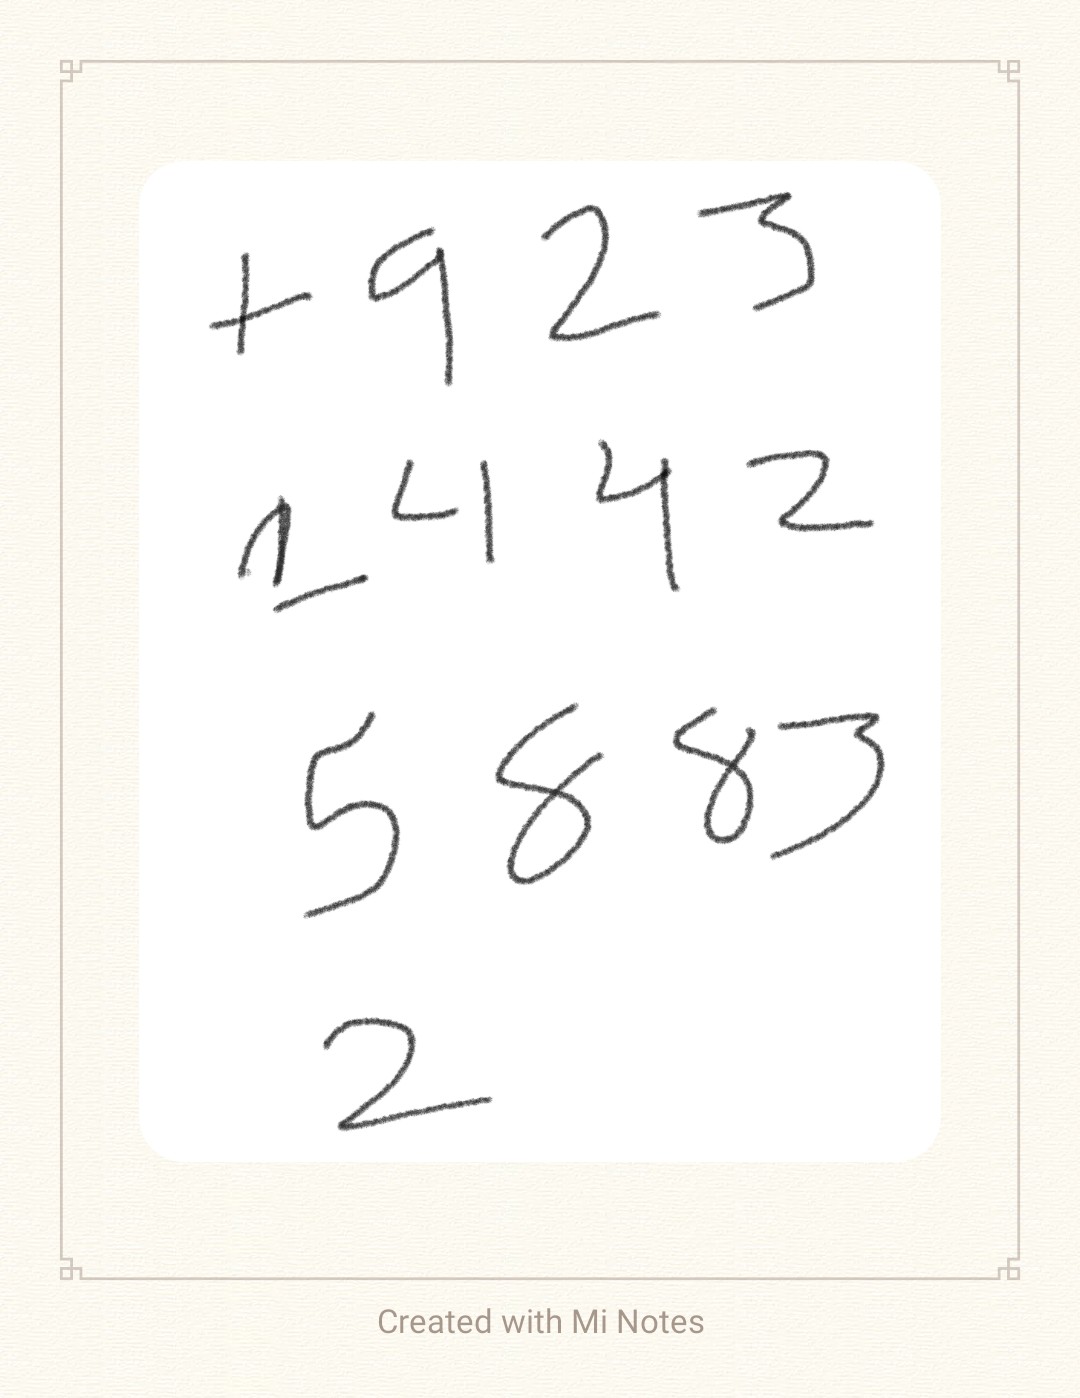 +923
1442
5883
2
Created with Mi Notes